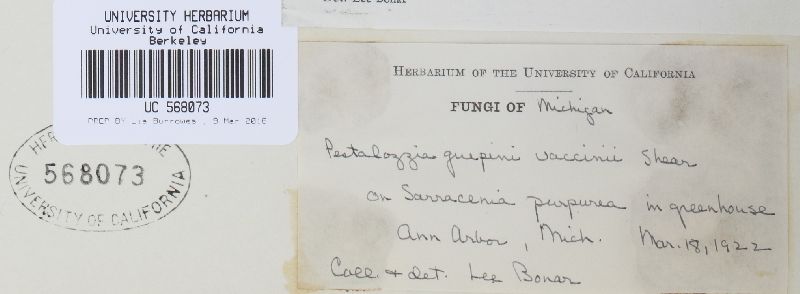 Lee Bonar
UNIVERSITY HERBARIUM
University of California
Berkeley
UC 568073
PREP BY Lia Burrowes , 9 Mar 2016
568073
UNIVERSITY OF CALIFORNIA
HERBARIUM OF THE UNIVERSITY OF CALIFORNIA
FUNGI OF Michigan
Pestalozzia guepini vaccinii Shear
on Sarracenia purpurea in greenhouse
Ann Arbor, Mich. Mar. 18, 1922
Coll. + det. Lee Bonar